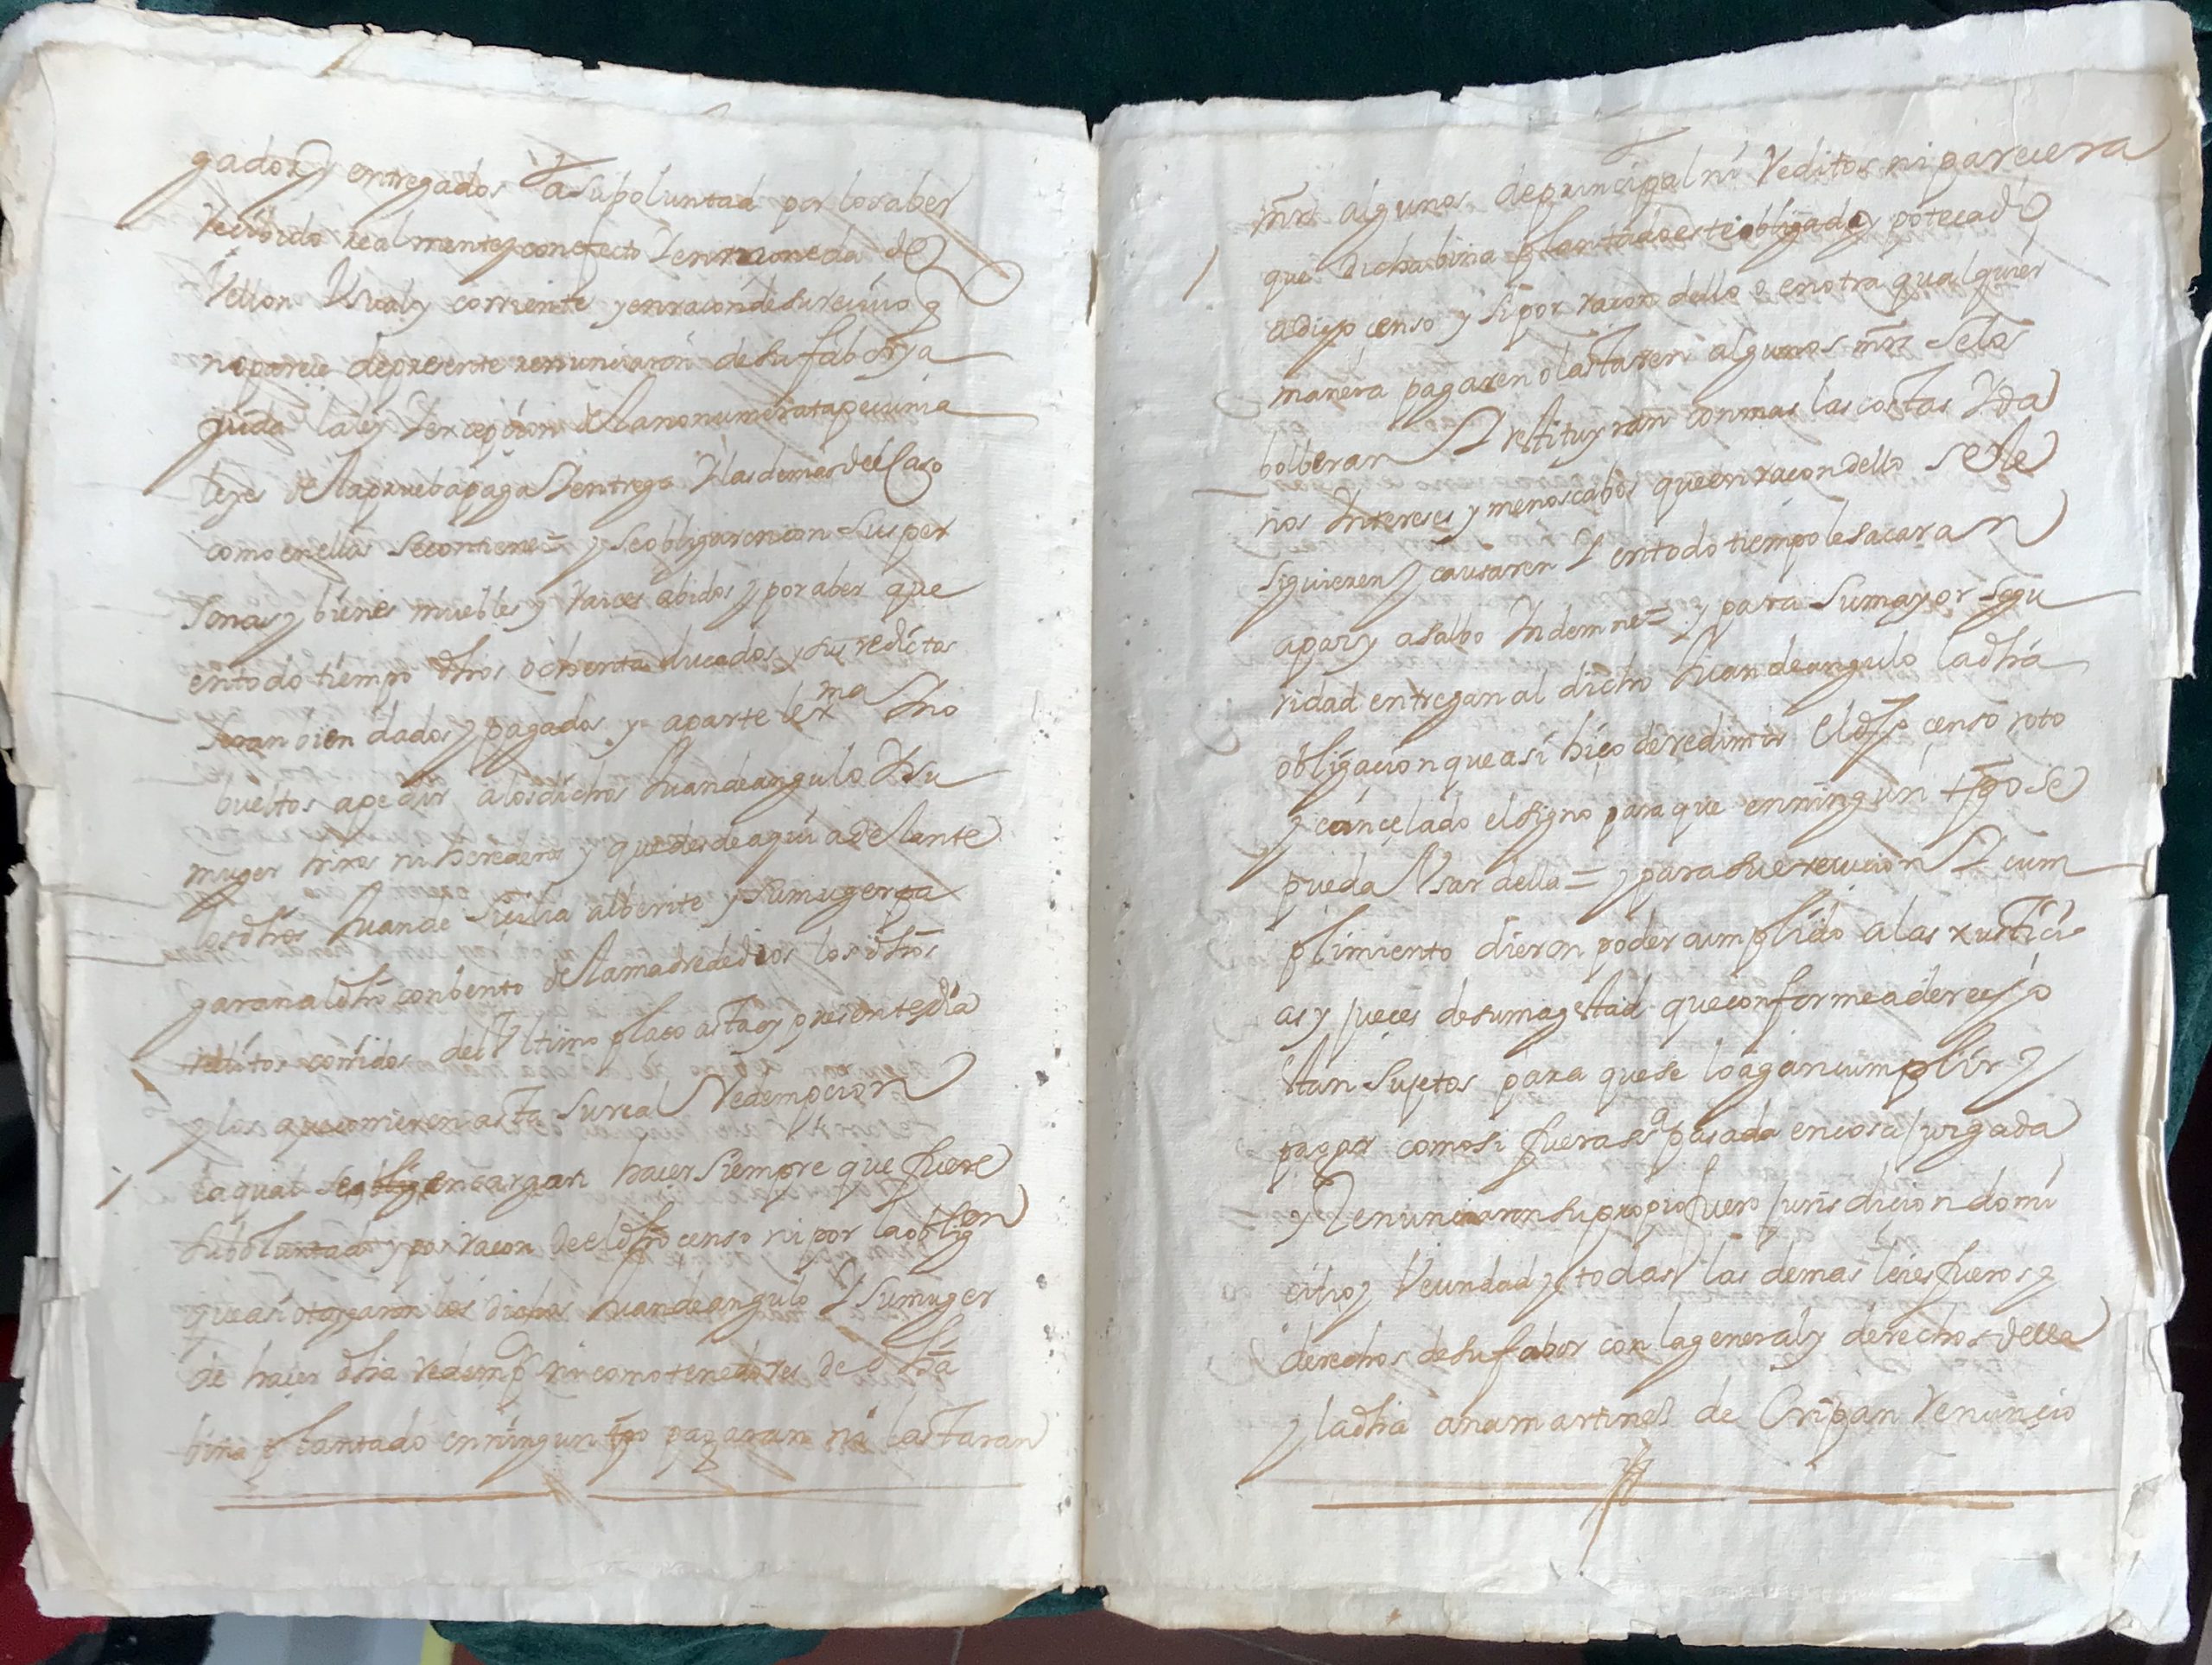 gados y entregados a su boluntad por los aber
Recibido realmente y con efecto Y en moneda de
Vellon Usual y corriente y en raçon de su recivo q
no parece de presente renunciaron de su fabor y a
yuda la ley Y excepcion de la nonumerata pecunia
leyes de la prueba paga Y entrega Y las demas del Caso
como en ellas se contiene = y se obligaron con sus per
sonas y bienes muebles y Raices abidos y por aber que
en todo tiempo dhos ochenta ducados y sus reditos
seran bien dados y pagados y a parte lexma No
bueltos a pedir a los dichos Juan de angulo Y su
muger hixos ni herederos y que desde aqui adelante
los dhos Juan de Sicilia alberite y su muger pa
garan al dho conbento de la madre de dios los dhos
reditos corridos del Ultimo plaço asta oy presente dia
y los que corrieren asta su real Redempcion
la qual se encargan hacer siempre que fuere
su boluntad y por raçon de el dho censo ni por la obligon
que asi otorgaron los dichos Juan de angulo Y su muger
de hacer dha redempon ni como tenedores de dha
biña plantado en ningun tpo pagaran ni lastaran
mrs algunos de principal ni Reditos ni pareciera
que dicha biña plantado este obligado y potecado
a dicho censo y si por raçon dello o en otra qualquier
manera pagaren o lastaren algunos mrs se los
bolberan Y restituyran con mas las costas Y da
nos Intereses y menoscabos que en raçon dello se le
siguieren y causaren Y en todo tiempo le sacaran
a paz y a salbo Indemne = y para su mayor segu
ridad entregan al dicho Juan de angulo la dha
obligacion que asi hiço de redimir el dho censo roto
y cançelado el signo para que en ningun tpo se
pueda Usar dello = y para su execucion Y cum
plimiento dieron poder cumplido a las xustici
as y jueces de su magestad que conforme a derecho
stan sujetos para que se lo agan cumplir y
pagar como si fuera sa pasada en cosa juzgada
y Renunciaron su propio fuero jurisdicion domi
cilio y Vecindad y todas las demas leies fueros y
derechos de su fabor con la general y derechos della
y la dha ana martinez de Cripan Renunçio